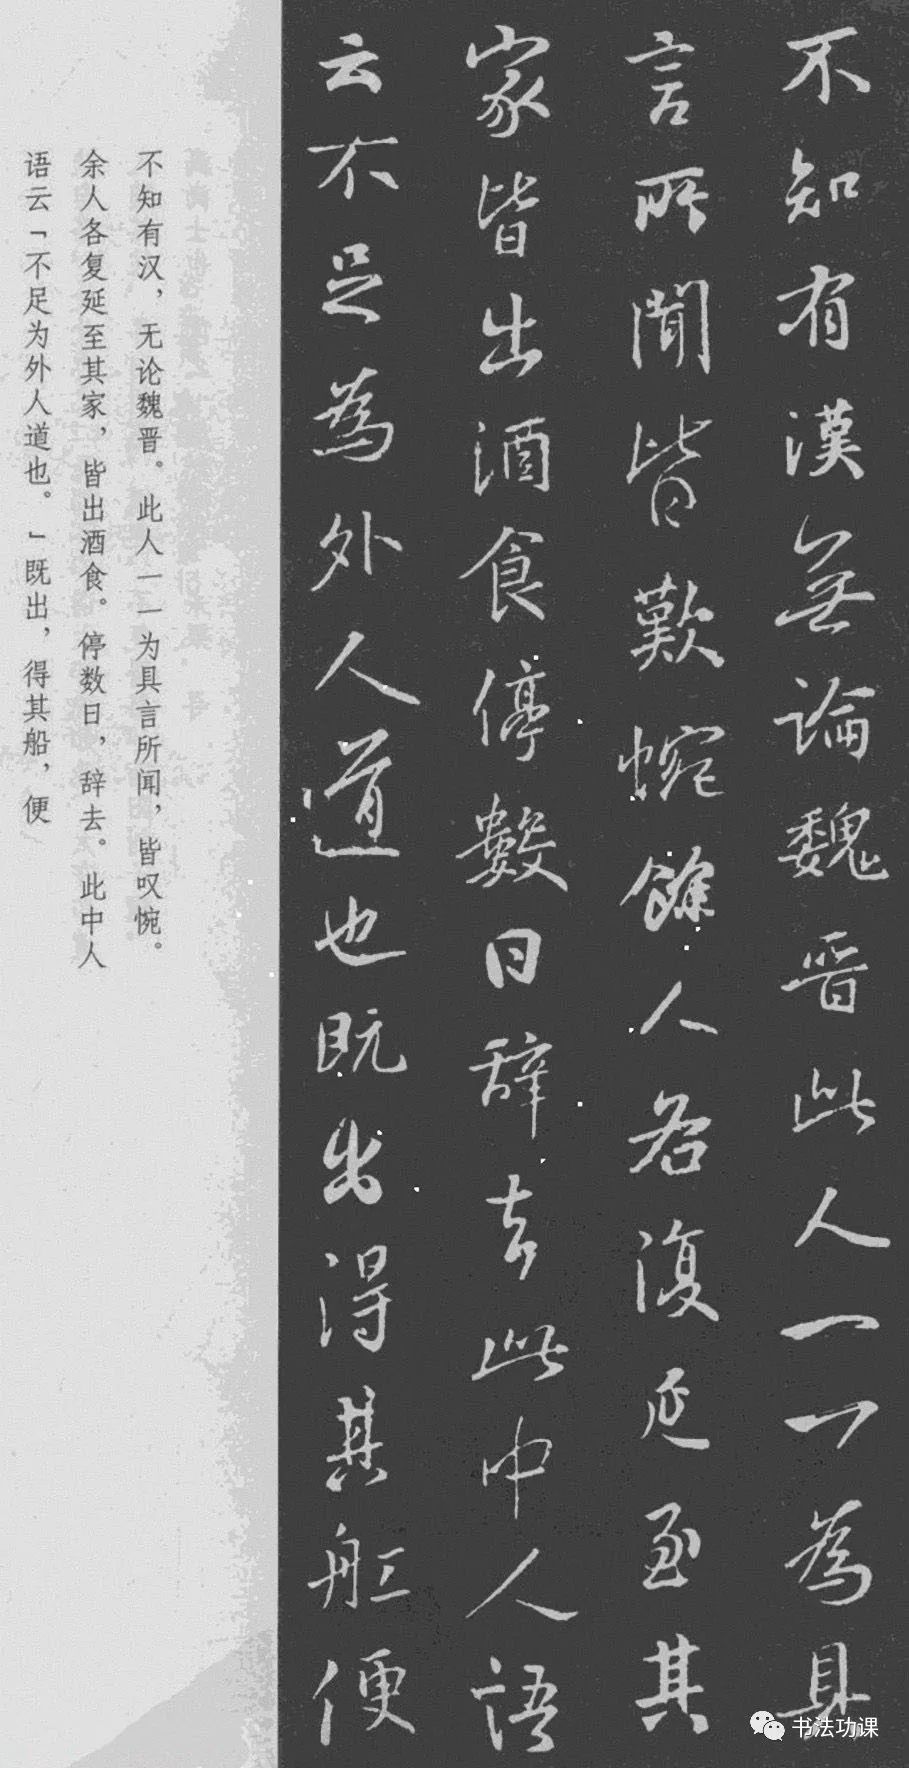 不知有漢無論魏晋此人一一為具
言所聞皆歎惋餘人各復延至其
家皆出酒食停數日辞去此中人語
云不足為外人道也既出得其舩便
不知有汉，无论魏晋。此人一一为具言所闻，皆叹惋。
余人各复延至其家，皆出酒食。停数日，辞去。此中人
语云「不足为外人道也。」既出，得其船，便
书法功课